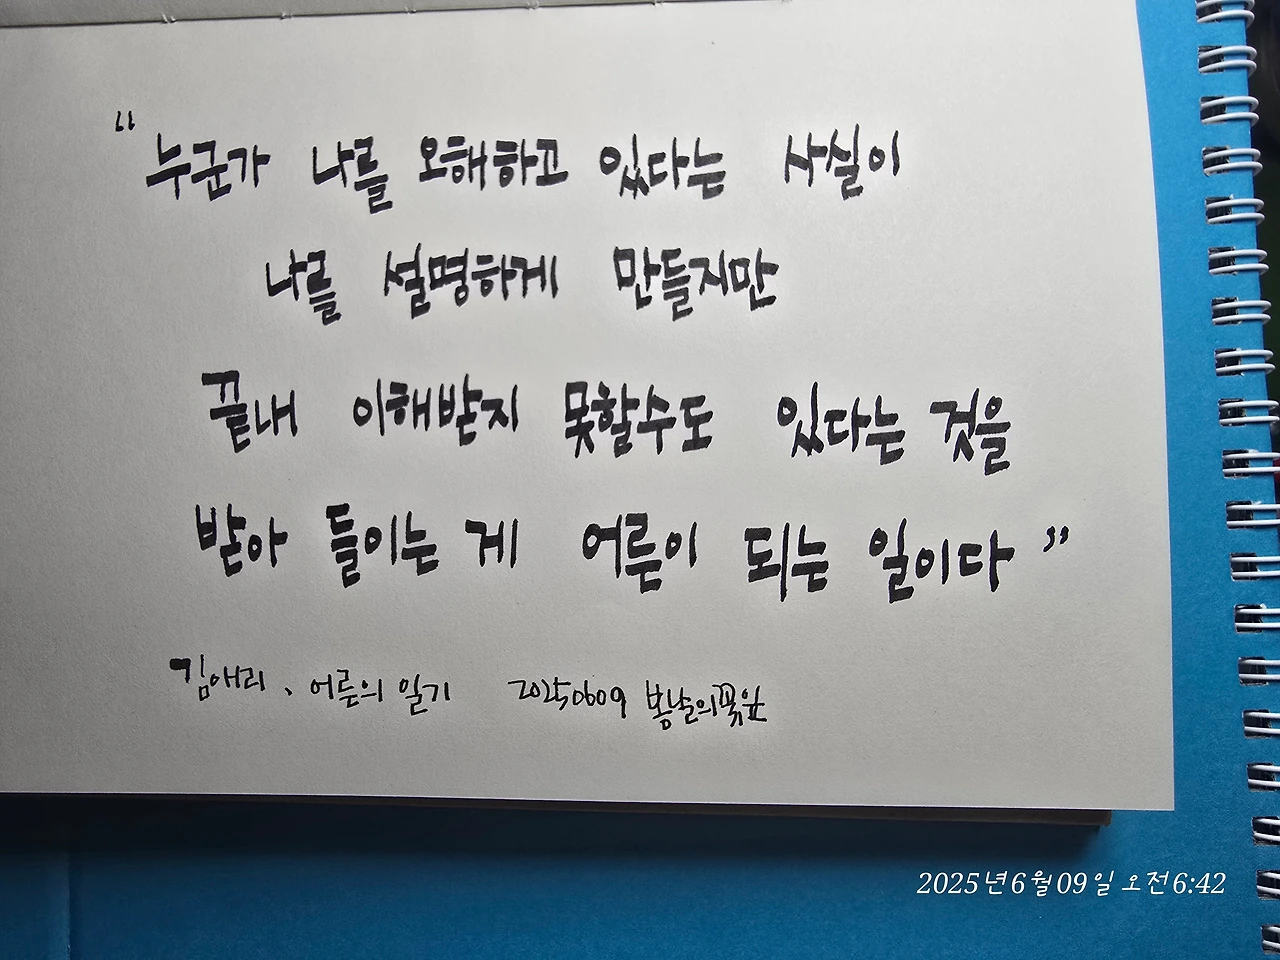 “누군가 나를 오해하고 있다는 사실이
나를 설명하게 만들지만
끝내 이해받지 못할수도 있다는 것을
받아 들이는 게 어른이 되는 일이다”
김애리、어른의 일기 20250609 봄날의
2025년6월09일 오전6:42